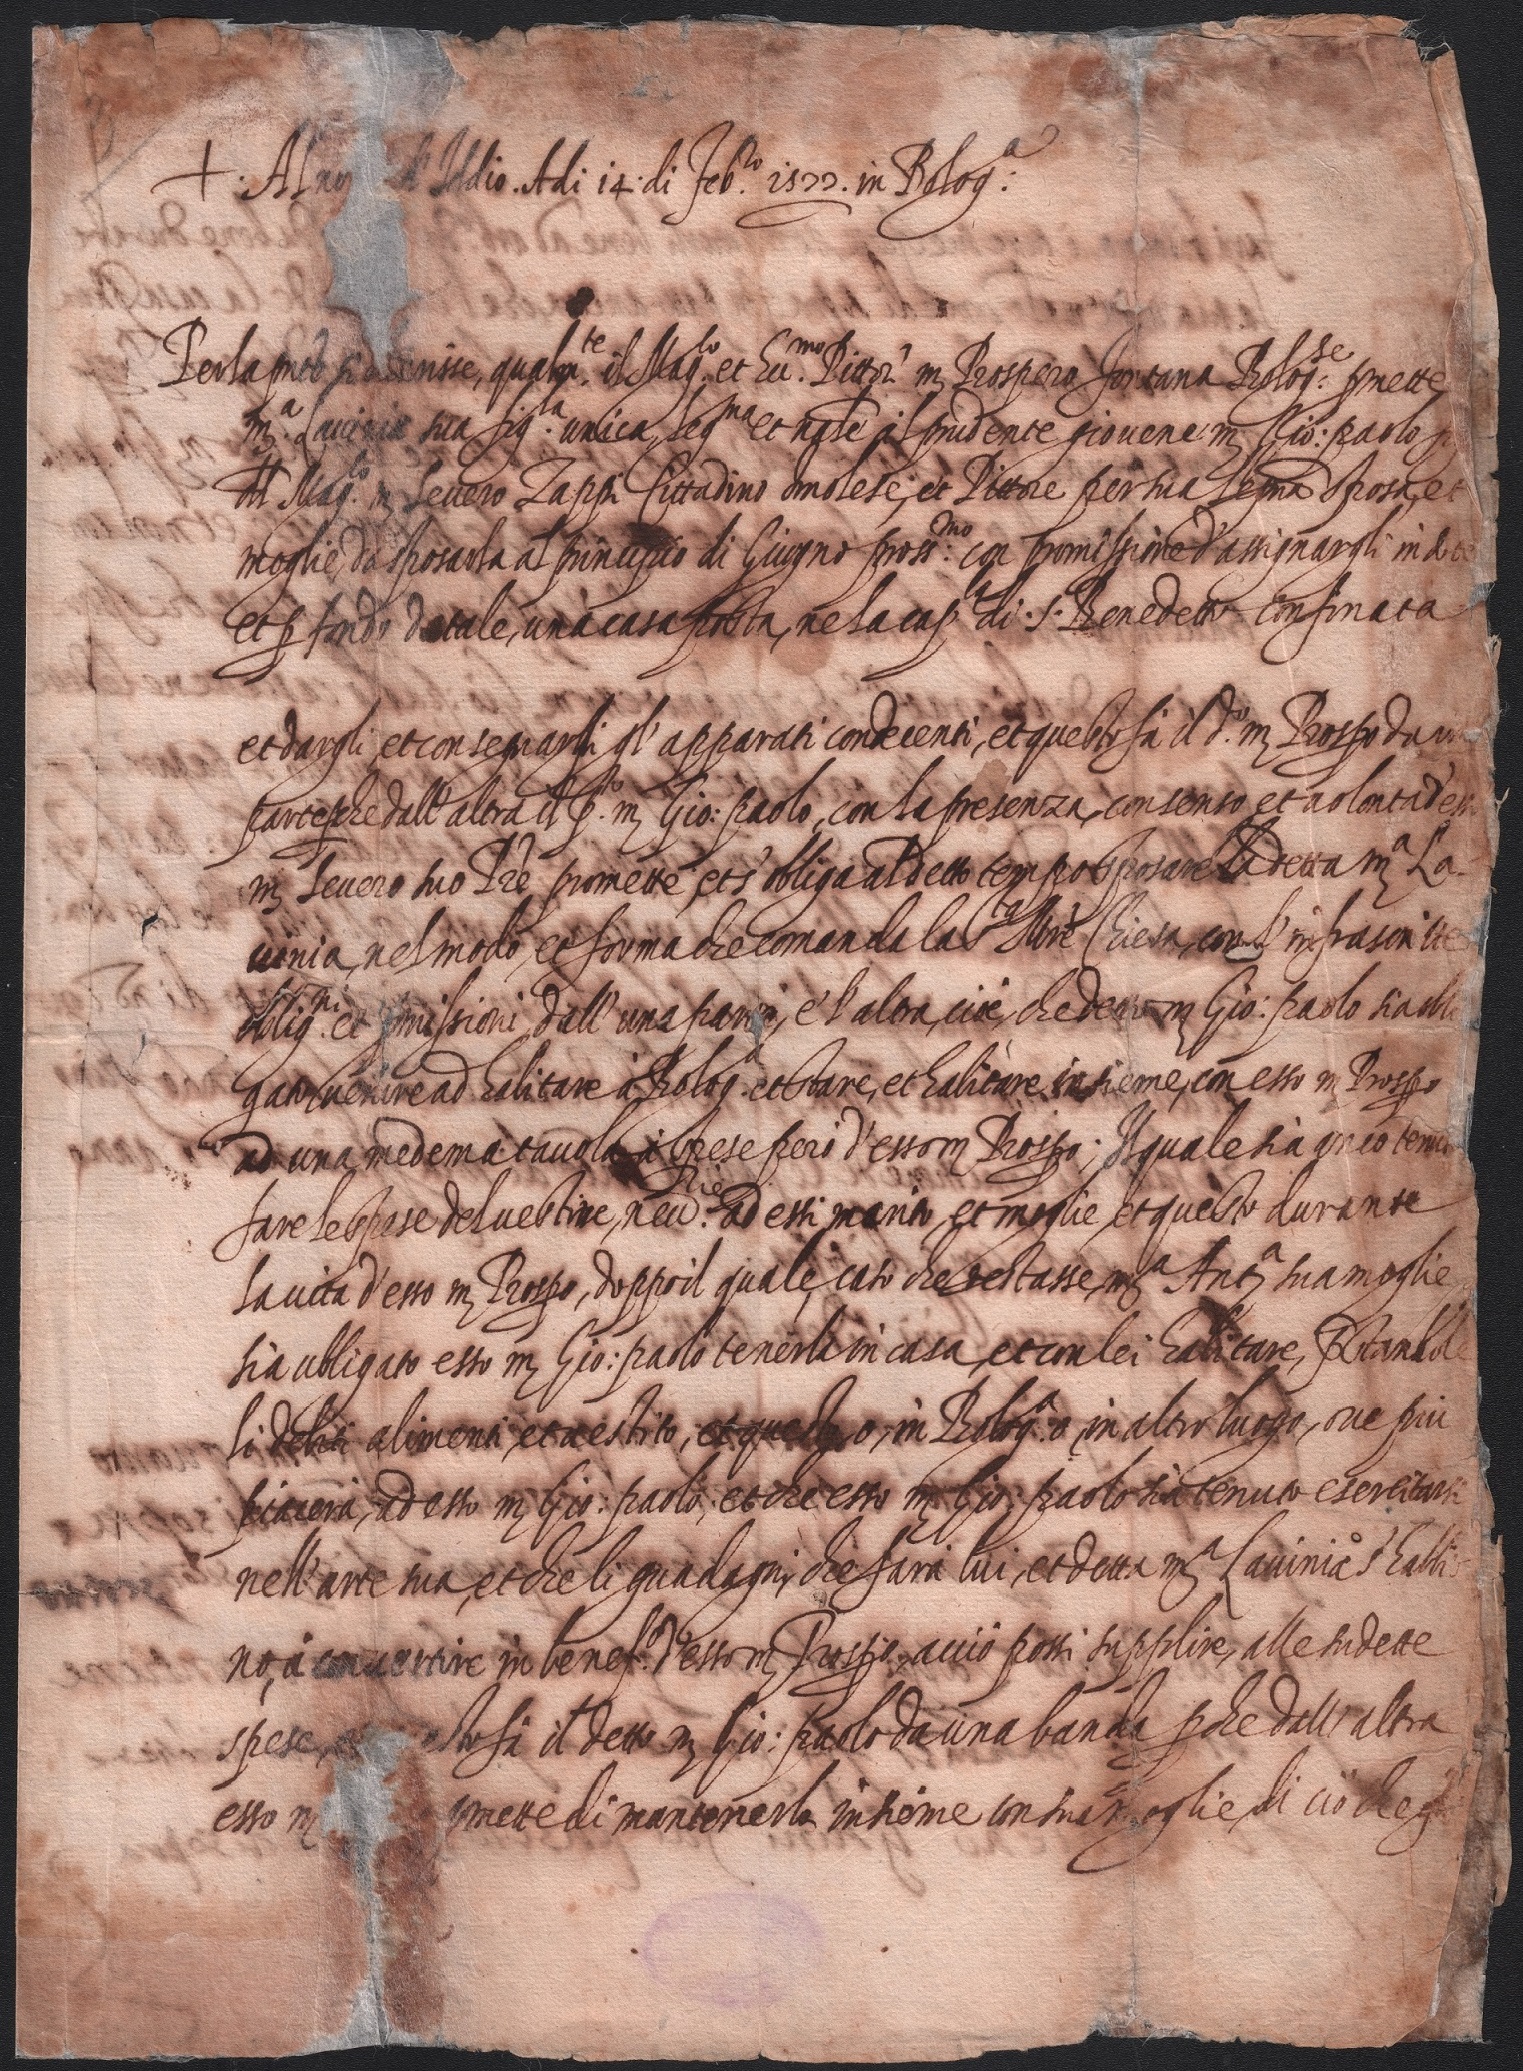 +. Al no d'Iddio. Adi 14. di Feb.ro 1577. in Bolog.a:
Per la pnte si dice, qualm.te il Mag.co et Ecc.mo Pittor m. Prospero Fontana Bolog.se pmette
m.a Lavinia sua fig.la unica, leg.ma et n̄ale al prudente giovene m. Gio: paolo
del Mag.co m. Severo Zappi Cittadino Imolese, et Pittore per sua legma sposa, et
moglie, da sposarla al principio di Giugno pross.mo con promissione d'assignargli in dote
et p fondo dotale, una casa posta, ne la cap.a di .S. Benedetto confinata
et dargli, et consegnargli gl'apparati condecenti, et questo fà il d.o m. Prospo da una
parte pche dall'altra il p.o m. Gio: paolo, con la presenza, consenso, et volonta d'esso
m. Severo suo Pre, promette, et s'obliga al detto tempo sposare la detta m.a La-
vinia, nel modo, et forma che comanda la S.ta Mre Chiesa, con l'infrascritte
oblig.ni et pmissioni, dall'una parte, e l'altra, cioè, che detto m. Gio: paolo sia obli
gato venire ad habitare à Bolog.a et stare, et habitare insieme, con esso m. Prospo
ad una medema tavola à spese però d'esso m. Prospo; Il quale sia anco tenuto
fare le spese del vestire, nec.rie ad essi marito, et moglie, et questo durante
la vita d'esso m. Prospo, doppo il quale, caso che restasse, m.a Ant.a sua moglie,
sia ubligato esso m. Gio: paolo tenerla in casa, et con lei habitare, prestandole
li debiti alimenti, et vestito, et questo, o, in Bolog.a o, in altro luogo, ove più
piacerà, ad esso m. Gio: paolo, et che esso m. Gio: paolo sia tenuto esercitarsi
nell'arte sua, et che li guadagni, che farà lui, et detta m.a Lavinia s'habbi
no, à convertire in benef.o d'esso m. Prospo, acciò possi supplire, alle sudette
spese, fà il detto m. Gio: paolo da una banda pche dall'altra
esso m. pmette di mantenerlo insieme con sua moglie, di ciò che